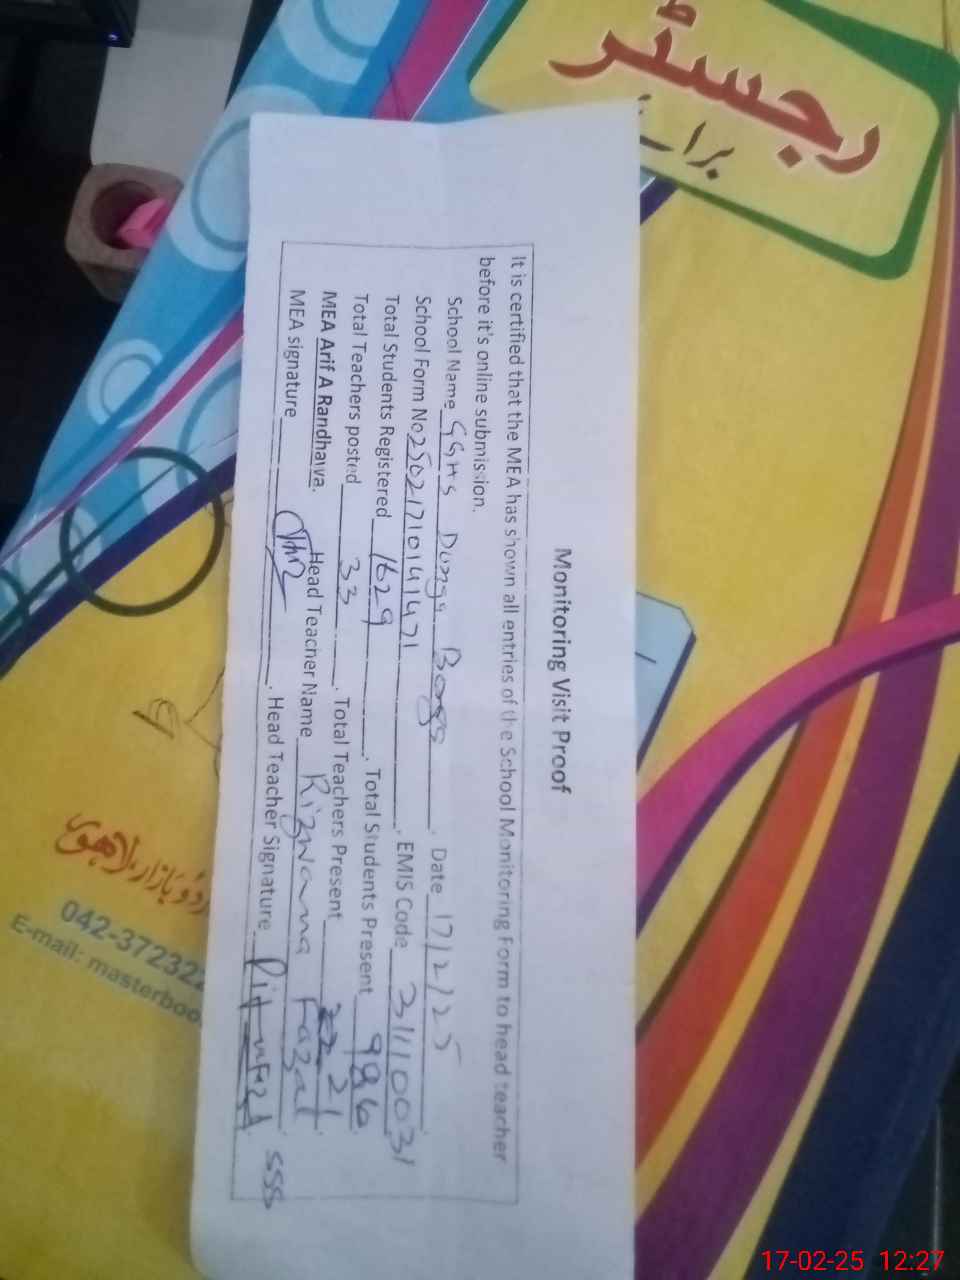 رجسٹر
برائے
Monitoring Visit Proof
It is certified that the MEA has shown all entries of the School Monitoring Form to head teacher
before it's online submission.
School Name GGHS Dunga Bonga. Date 17/2/25
School Form No 2502171014171. EMIS Code 31110031
Total Students Registered 1629. Total Students Present 986.
Total Teachers posted 33. Total Teachers Present 21.
MEA Arif A Randhawa. Head Teacher Name Rizwana Fazal.
MEA signature. Head Teacher Signature SSS
اردو بازار، لاہور
042-37232
E-mail: masterboo
17-02-25 12:27